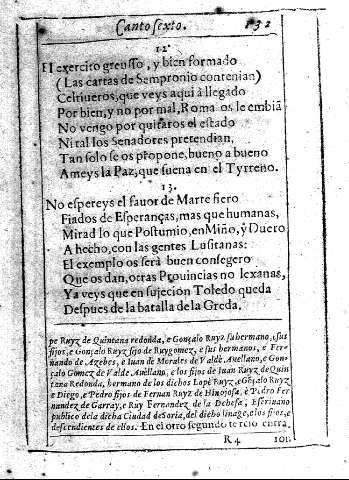 Canto sexto. 132
12.
El exercito gruesso, y bien formado
(Las cartas de Sempronio contenian)
Celtiueros, que veys aqui à llegado
Por bien, y no por mal, Roma os le embiã
No vengo por quitaros el estado
Ni tal los Senadores pretendian,
Tan solo se os propone, bueno a bueno
Ameys la Paz, que suena en el Tyrreno.
13.
No espereys el fauor de Marte fiero
Fiados de Esperanças, mas que humanas,
Mirad lo que Postumio, en Miño, y Duero
A hecho, con las gentes Lusitanas:
El exemplo os serà buen consegero
Que os dan, otras Prouincias no lexanas,
Ya veys que en sujecion Toledo queda
Despues de la batalla de la Greda.
pe Ruyz de Quintana redonda, e Gonçalo Ruyz su hermano, e sus
fijos, e Gonçalo Ruyz fijo de Ruygomez, e sus hermanos, e Fer-
nando de Azebes, e Iuan de Morales de Valde Auellano, e Gon-
çalo Gomez de Valde Auellano, e los fijos de Iuan Ruyz de Quin
tana Redonda, hermano de los dichos Lope Ruyz, e Gõçalo Ruyz
e Diego, e Pedro fijos de Fernan Ruyz de Hinojosa, è Pedro Fer
nandez de Garray, e Ruy Fernandez de la Debesa, Escriuano
publico de la dicha Ciudad de Soria, del dicho linage, e los fijos, e
descendientes de ellos. En el otro segundo tercio entra,
R 4 ron